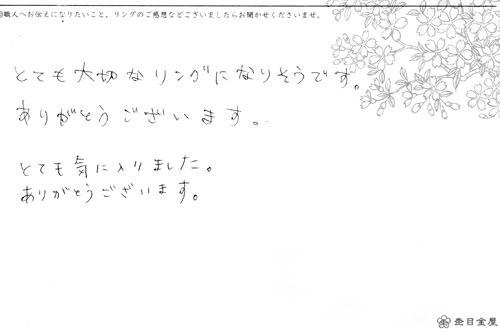 職人へお伝えになりたいこと、リングのご感想などございましたらお聞かせくださいませ。
とても大切なリングになりそうです。
ありがとうございます。
とても気に入りました。
ありがとうございます。
杢目金屋